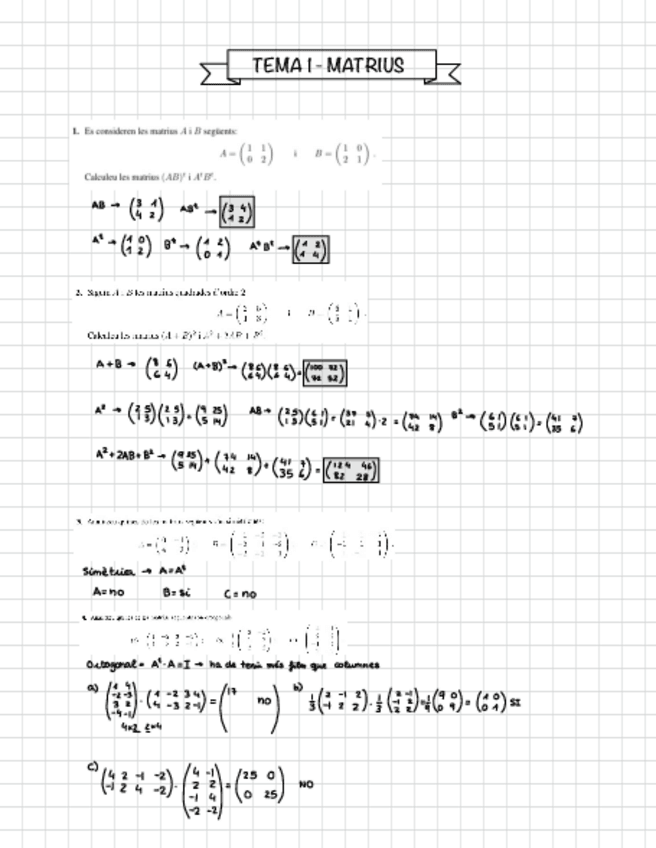 TEMA 1 - MATRIUS
1. Es consideren les matrius A i B següents:
A = ( 1 1 / 0 2 ) i B = ( 1 0 / 2 1 ) .
Calculeu les matrius (AB)ᵗ i AᵗBᵗ.
AB → ( 3 1 / 4 2 ) ABᵗ → ( 3 4 / 1 2 )
Aᵗ → ( 1 0 / 1 2 ) Bᵗ → ( 1 2 / 0 1 ) AᵗBᵗ → ( 1 2 / 1 4 )
2. Siguin A i B les matrius quadrades d'ordre 2
Calculeu les matrius (A + B)² i A² + 2AB + B².
A+B → ( 8 6 / 6 4 ) (A+B)² → ( 8 6 / 6 4 )( 8 6 / 6 4 ) = ( 100 72 / 72 52 )
A² → ( 2 5 / 1 3 )( 2 5 / 1 3 ) = ( 9 25 / 5 14 ) AB → ( 2 5 / 1 3 )( 6 1 / 5 1 ) = ( 37 7 / 21 4 ) · 2 = ( 74 14 / 42 8 ) B² → ( 6 1 / 5 1 )( 6 1 / 5 1 ) = ( 41 7 / 35 6 )
A² + 2AB + B² → ( 9 25 / 5 14 ) + ( 74 14 / 42 8 ) + ( 41 7 / 35 6 ) = ( 124 46 / 82 28 )
Simètrica → A = Aᵗ
A = no B = sí C = no
Octogonal = Aᵗ · A = I → ha de tenir més files que columnes
a) ( 1 4 / -2 -3 / 3 2 / -4 -1 ) · ( 1 -2 3 4 / 4 -3 2 -1 ) = ( 17 no )
4x2 2x4
b) 1/3 ( 2 -1 2 / -1 2 2 ) · 1/3 ( 2 -1 / -1 2 / 2 2 ) = 1/9 ( 9 0 / 0 9 ) = ( 1 0 / 0 1 ) SI
c) ( 4 2 -1 -2 / -1 2 4 -2 ) · ( 4 -1 / 2 2 / -1 4 / -2 -2 ) = ( 25 0 / 0 25 ) NO